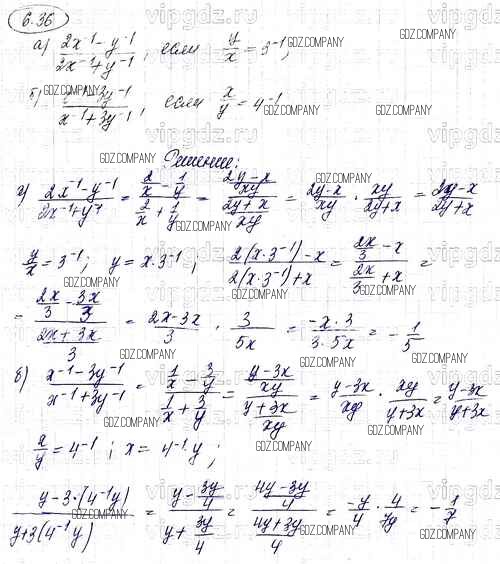 6.36
а) (2x⁻¹ - y⁻¹)/(2x⁻¹ + y⁻¹), если y/x = 3⁻¹;
б) (x⁻¹ - 3y⁻¹)/(x⁻¹ + 3y⁻¹), если x/y = 4⁻¹
Решение:
а) (2x⁻¹ - y⁻¹)/(2x⁻¹ + y⁻¹) = (2/x - 1/y)/(2/x + 1/y) = ((2y - x)/xy)/((2y + x)/xy) = (2y - x)/xy · xy/(2y + x) = (2y - x)/(2y + x)
y/x = 3⁻¹; y = x·3⁻¹; (2(x·3⁻¹) - x)/(2(x·3⁻¹) + x) = (2x/3 - x)/(2x/3 + x) =
= (2x/3 - 3x/3)/((2x + 3x)/3) = (2x - 3x)/3 · 3/5x = (-x·3)/(3·5x) = -1/5
б) (x⁻¹ - 3y⁻¹)/(x⁻¹ + 3y⁻¹) = (1/x - 3/y)/(1/x + 3/y) = ((y - 3x)/xy)/((y + 3x)/xy) = (y - 3x)/xy · xy/(y + 3x) = (y - 3x)/(y + 3x)
x/y = 4⁻¹; x = 4⁻¹y;
(y - 3·(4⁻¹y))/(y + 3(4⁻¹y)) = (y - 3y/4)/(y + 3y/4) = ((4y - 3y)/4)/((4y + 3y)/4) = -y/4 · 4/7y = -1/7
vipgdz.ru
GDZ.COMPANY